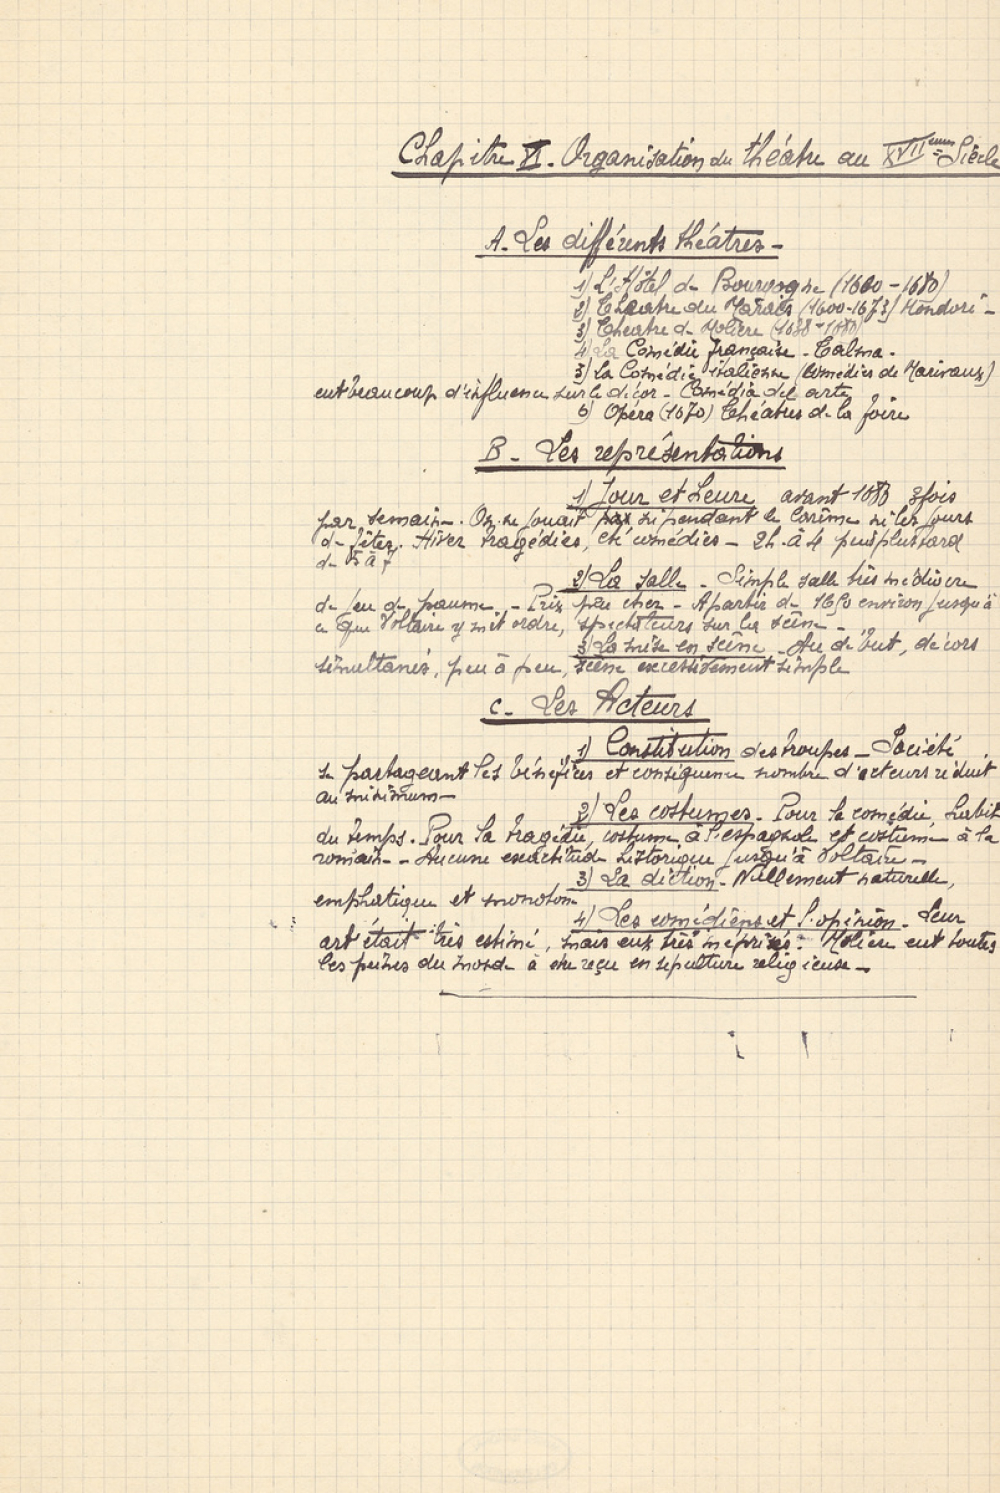 Chapitre VI. Organisation du théâtre au XVIIème Siècle
A. Les différents théâtres -
1) L'Hôtel de Bourgogne (1600 - 1680)
2) Théatre du Marais (1600-1673) Mondori -
3) Théatre de Molière (1658-1680)
4) La Comédie française - Talma -
5) La Comédie italienne (Comédies de Marivaux)
eut beaucoup d'influence sur le décor - Comédia del arte
6) Opéra (1670) Théâtres de la foire
B - Les représentations
1) Jour et heure avant 1680 3 fois
par semaine. On ne jouait pas ni pendant le Carême ni les jours
de fêtes. Hiver tragédies, été comédies - 2h. à 4 puis plus tard
de 5 à 7
2) La salle - Simple salle très médiocre
de jeu de paume - Prix peu cher - A partir de 1650 environ jusqu'à
ce que Voltaire y mit ordre, spectateurs sur la scène -
3) La mise en scène - Au début, décors
simultanés, peu à peu, scène excessivement simple
C - Les Acteurs
1) Constitution des troupes - Société
se partageant les bénéfices et conséquence nombre d'acteurs réduit
au minimum -
2) Les costumes - Pour la comédie, habit
du temps. Pour la tragédie, costume à l'espagnole et costume à la
romaine - Aucune exactitude historique jusqu'à Voltaire -
3) La diction - Nullement naturelle,
emphatique et monotone
4) Les comédiens et l'opinion - Leur
art était très estimé, mais eux très méprisés. Molière eut toutes
les peines du monde à être reçu en sépulture religieuse -